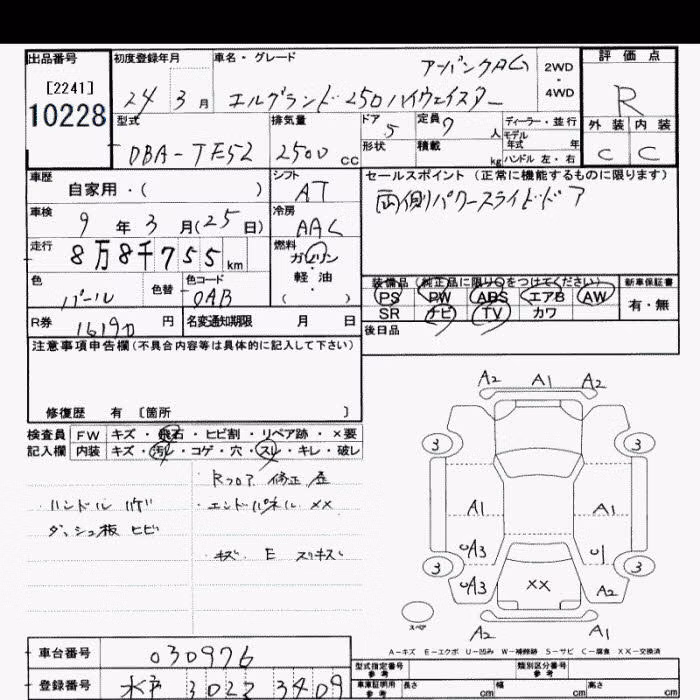 出品番号 初度登録年月 車名・グレード 評価点
[2241] アーバンクロム 2WD・4WD
10228 24 3月 エルグランド250ハイウェイスター R
型式 排気量 ドア 5 定員 7人 ディーラー・並行 外装 内装
形状 積載 kg モデル年式 年 ハンドル 左・右
DBA-TE52 2500cc C C
車歴 自家用・( ) シフト AT セールスポイント(正常に機能するものに限ります)
車検 9年3月(25日) 冷房 AAC 両側パワースライドドア
走行 8万8千755km 燃料 ガソリン・軽油( )
色 パール 色替 色コード QAB 装備品(純正品に限り○をつけてください) 新車保証書
PS PW ABS エアB AW 有・無
SR ナビ TV カワ
R券 16190円 名変通知期限 月 日 後日品
注意事項申告欄(不具合内容等は具体的に記入して下さい)
修復歴 有〔箇所 〕
検査員 FW キズ・飛石・ヒビ割・リペア跡・×要
記入欄 内装 キズ・汚レ・コゲ・穴・スレ・キレ・破レ
Rフロア 修正歴
ハンドル ハゲ エンドパネル ××
ダッシュ板 ヒビ
キズ E スリキズ
A2 A1 A2
3 3
A1 A1
UA3 U1
3 3
UA3 ×× A2
スペア
A2 A1
A-キズ E-エクボ U-凹み W-補修跡 S-サビ C-腐食 ××-交換済
車台番号 030976 型式指定番号 参考 類別区分番号 参考
登録番号 水戸 302 ろ 3409 車庫証明用 参考 長さ cm 幅 cm 高さ cm